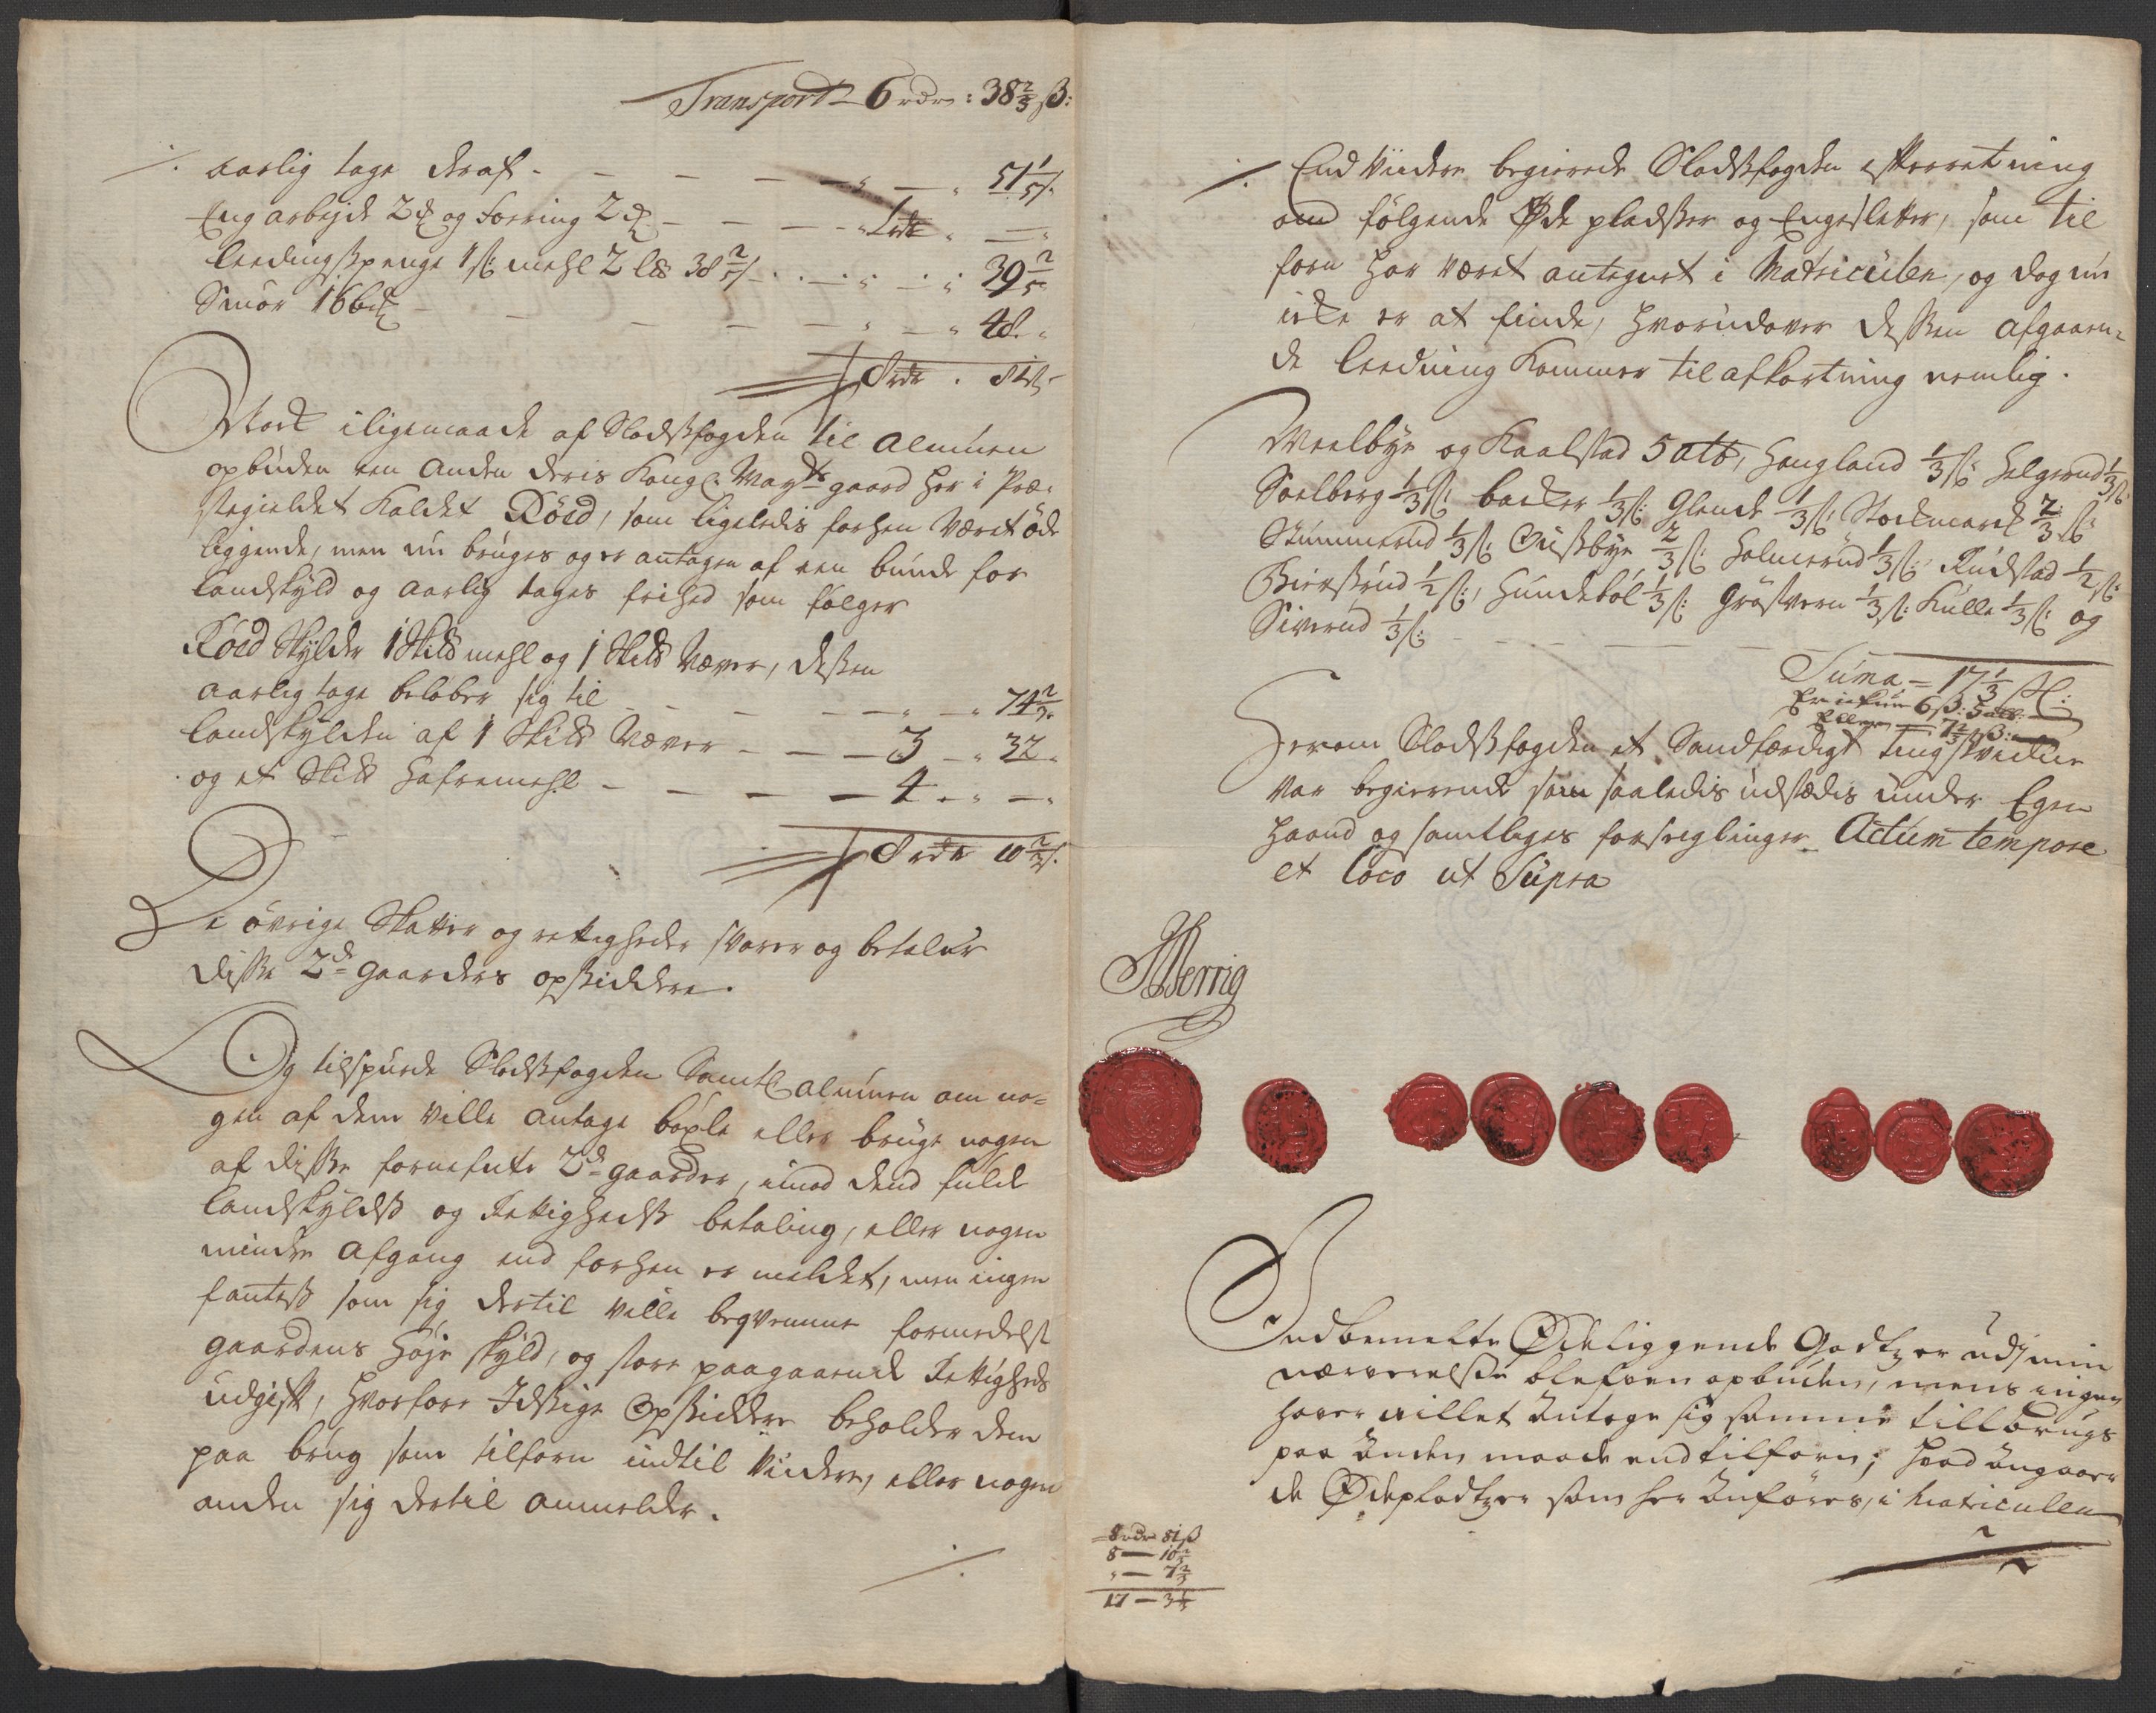 Transport – 6 rdr : 38 2/5 ß:
⁒ aarlig tage deraf - - - - - " - " 51 1/5 ß
Eng arbejde 2 og Foering 2 - - - " 1 rdr " — "
leedings penge 1 ß: mehl 2 l℔ 38 2/5 ß - - - " - " 39 2/5
Smör 16 - - - - - " - " 48 "
8 rdr . 81 ß
Blef iligemaade af Slodtsfogden til Almuen
opbuden een Anden deris Kongl: Mayts gaard her i Præ-
stegieldet Kaldet Röed, som ligeledis forhen Været öde
liggende, men nu bruges og er antagen af een bunde for
landskyld og aarlig tages frihed som følger
Röed Skylder 1 Skild mehl og 1 Skild Varer, dessen
aarlig tage beløber sig til - - - - " - " 74 2/3 "
landskylden af 1 Skild Varer - - - 3 - " 32 "
og et Skild hafremehl - - - - 4 " - " — "
8 rdr 10 2/3 ß
De övrige Skatter og rettigheder svarer og betaler
disse 2de gaarders opsiddere.
Og tilspurde Slodtsfogden Samtl: almuen om no-
gen af dem ville antage böxle eller bruge nogen
af disse fornefnte 2de gaarder, imod dend fulde
landskylds og Rettigheds betaling, eller nogen
mindre Afgang end forhen er meldet, men ingen
fantes som sig dertil ville beqvemme formedelst
gaardens höje skyld, og store paagaaende Rettigheds
udgift, hvorfore Idssige Opsiddere beholder dem
paa brug som tilforn indtil Viidere, eller nogen
anden sig dertil anmelder.
⁒
⁒ End Viidere begierede Slodtsfogden efterretning
om følgende Öde pladser og Engesletter, som til
forn har været antegnet i Matriculen, og dog nu
icke er at finde, hvorudover dessen afgaaen-
de leedning Kommer til afkortning nemlig.
Meelbye og Kaalstad 5 alb, Haugland 1/3 ß: Helgerud 1/3 ß:
Soelberg 1/3 ß: backer 1/3 ß: Glende 1/3 ß: Stockmarck 2/3 ß:
Stummerud 1/3 ß: Ousbye 2/3 ß: Holmerud 1/3 ß: Rudstad 1/2 ß:
Biersrud 1/2 ß:, Hundeböl 1/3 ß: Gröstvern 1/3 ß: Kulle 1/3 ß: og
Siverud 1/3 ß: - - - -
Suma = 17 1/3 ß:
6 ß: 5 alb:
Ellers — 7 2/3 ß:
Herom Slodtsfogden et Sandfærdigt tingsvidne
var begierende som saaledis udstædis under Egen
haand og samtliges forseglinger. Actum tempore
et loco ut Supra
Werrig
Indbemelte Ödeliggende Godtzer udj min
nærverelse blefven opbuden, mens ingen
haver villet antage sig samme till brugs
paa anden maade end tilforn; hvad angaar
de Ödeplodtzer som her anföres, i Matriculen
8 rdr 81 ß
8 — 10 2/3
" — 7 2/3
17 — 3 1/3